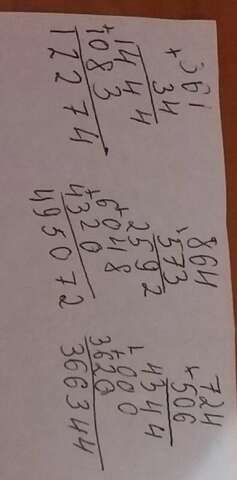 ×361
34
1444
+1083
12274
864
×573
2592
+6048
+4320
495072
724
×506
4344
+000
3620
366344